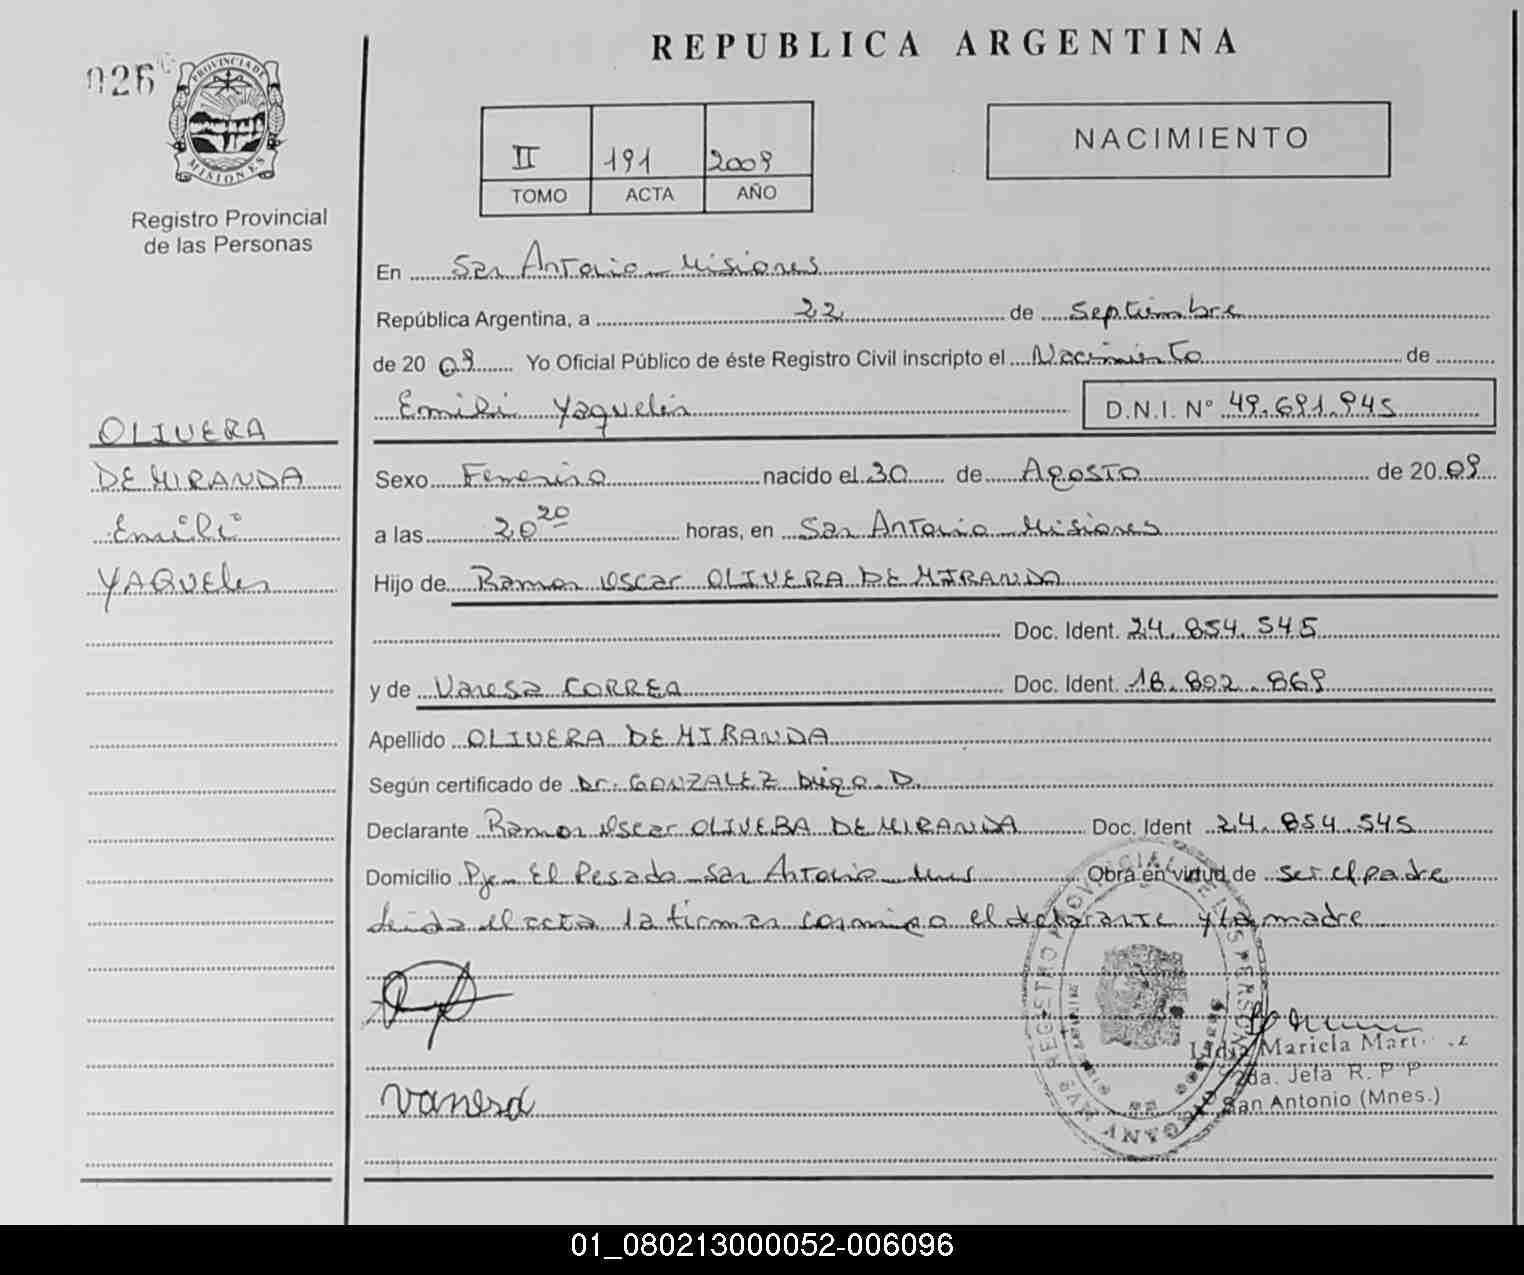 REPUBLICA ARGENTINA
026
PROVINCIA DE
MISIONES
Registro Provincial
de las Personas
II 191 2009
TOMO ACTA AÑO
NACIMIENTO
En San Antonio - Misiones
República Argentina, a 22 de Septiembre
de 20 09 Yo Oficial Público de éste Registro Civil inscripto el Nacimiento de
Emili Yaquelin
D.N.I. N° 49.691.945
OLIVERA
DE MIRANDA
Emili
YAQUELin
Sexo Femenino nacido el 30 de Agosto de 20 09
a las 20 20 horas, en San Antonio Misiones
Hijo de Ramon Oscar OLIVERA DE MIRANDA
Doc. Ident. 24.854.545
y de Vanesa CORREA Doc. Ident. 18.802.869
Apellido OLIVERA DE MIRANDA
Según certificado de Dr. GONZALEZ Diego D.
Declarante Ramon Oscar OLIVERA DE MIRANDA Doc. Ident 24.854.545
Domicilio Pje. El Pesado - San Antonio - Mnes Obra en virtud de ser el padre
leida el acta la firman conmigo el declarante y la madre
vanesa
REGISTRO PROVINCIAL DE LAS PERSONAS
Lidia Mariela
2da. Jefa R. P. P.
San Antonio (Mnes.)
01_080213000052-006096